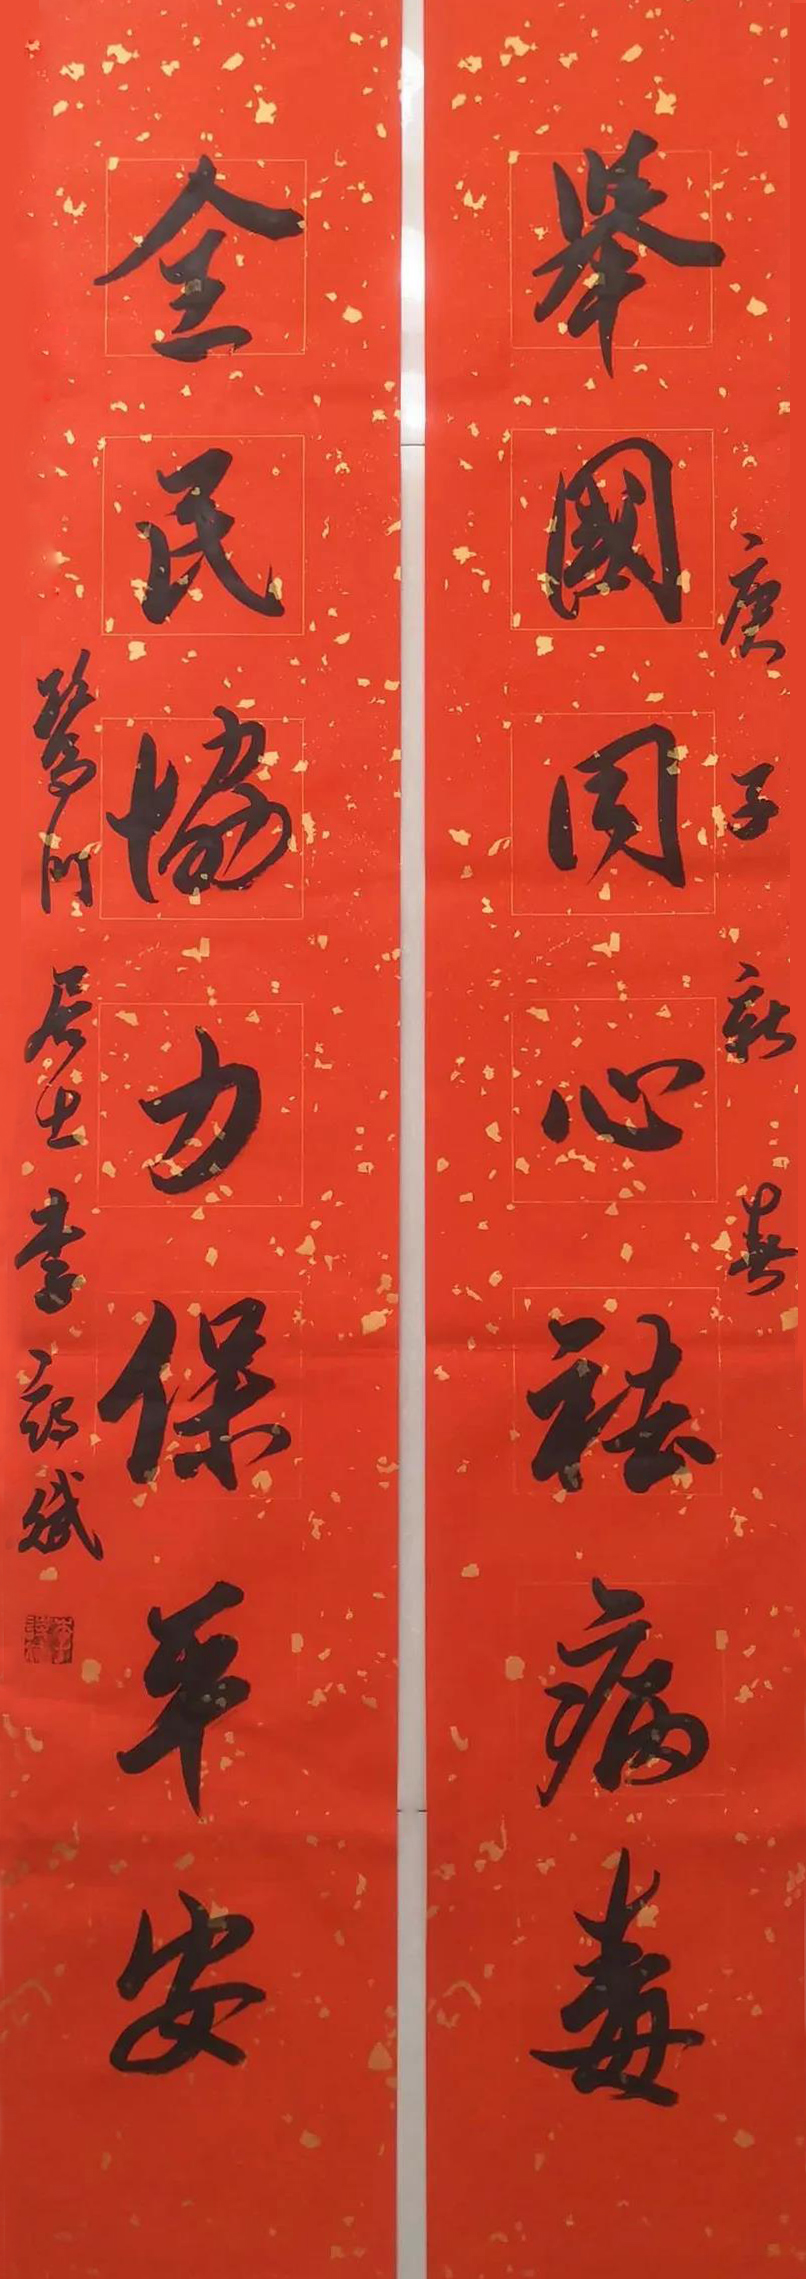 舉國同心祛病毒
庚子新春
全民協力保平安
鷺門居士李